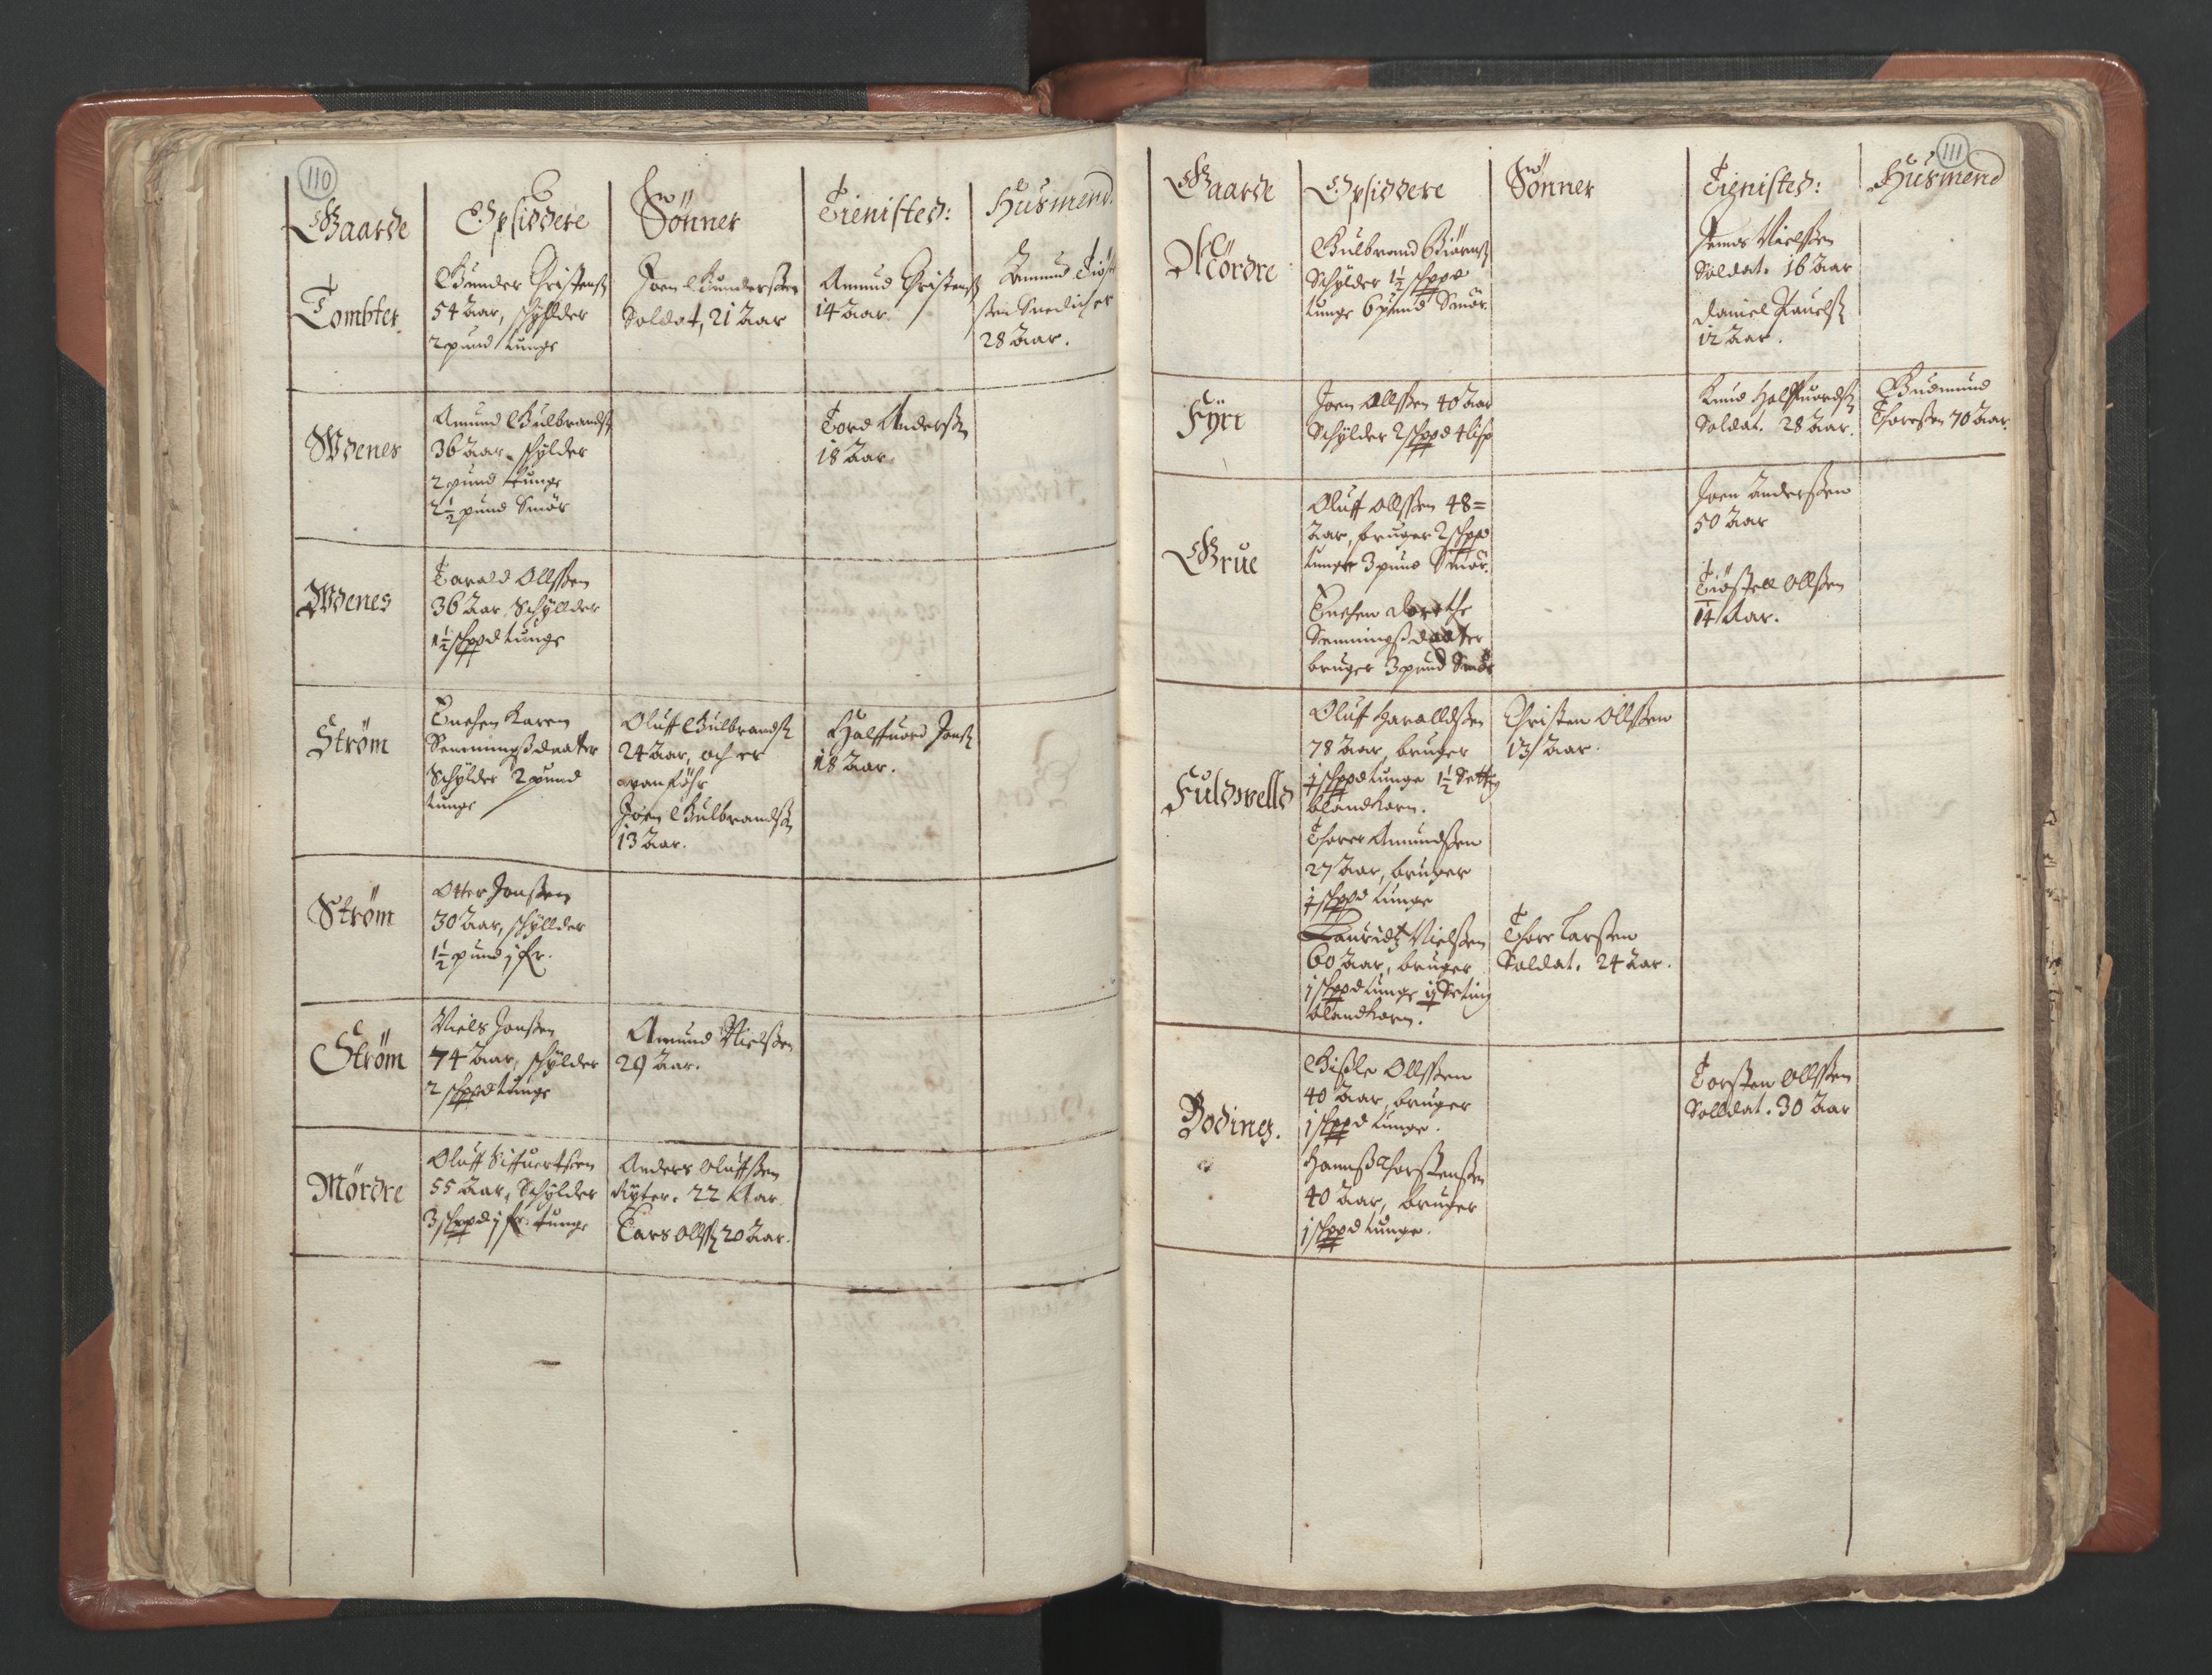 110
Gaarde Opsiddere Sönner Tienisted: Husmend.
Tombter.
Gunder Christens
54 Aar, schyllder
2 pund tunge
Joen Gunderssen
Soldat, 21 Aar
Amund Christens
14 Aar.
Amund
28 Aar.
Wdenes
Amund Gulbrands
36 Aar. schylder
2 pund tunge
2½ pund Smör
Tord Anders
18 Aar.
Wdenes
Harald Ollssen
36 Aar. Schyllder
1½ schppd tunge
Ström
Enchen Karen
Semmingsdaatter
Schylder 2 pund
tunge
Oluff Gulbrands
24 Aar, och er
wanföhr
Joen Gulbrands
13 Aar.
Halffuord Jons
18 Aar.
Ström
Otter Jonssen
30 Aar, schyllder
1½ pund j fr.
Ström
Niels Jonssen
74 Aar, schylder
2 schppd tunge
Amund Nielssen
29 Aar.
Mördre
Oluff Siffuertsen
55 Aar, Schylder
3 schppd j fr. tunge
Anders Oluffssen
Ryter. 22 Aar
Lars Olls 20 Aar.
111
Gaarde Opsiddere Sönner Tienisted: Husmend
Mördre
Gulbrand Biörns
Schylder 1½ schppd
tunge 6 pund Smör.
Nielssen
Soldat. 16 Aar
Daniel Pouels
12 Aar.
Fyri
Joen Ollssen 40 Aar
Schylder 2 schppd 4 lisp
Knud Halffuords
Soldat. 28 Aar.
Gudmund
Thoressen 70 Aar.
Grue
Oluff Ollssen 48=
Aar, bruger 2 schppd
tunge 3 pund Smör.
Enchen Dorethe
Semmingsdaatter
bruger 3 pund Smör
Joen Anderssen
50 Aar
Tiöstell Ollssen
14 Aar.
Fuldwelld
Oluff Haralldssen
78 Aar, bruger
j schppd tunge 1½ Setting
blandkorn.
Thorer Amundssen
27 Aar, bruger
j schppd tunge
Lauridz Nielssen
60 Aar, bruger
j schppd tunge Setting
blandkorn.
Christen Ollssen
13 Aar.
Thore Larssen
Soldat. 24 Aar.
Bodings.
Gissle Ollssen
40 Aar, bruger
j schppd tunge.
Hanns Thorstenssen
40 Aar, bruger
j schppd tunge.
Torsten Ollssen
Solldat. 30 Aar